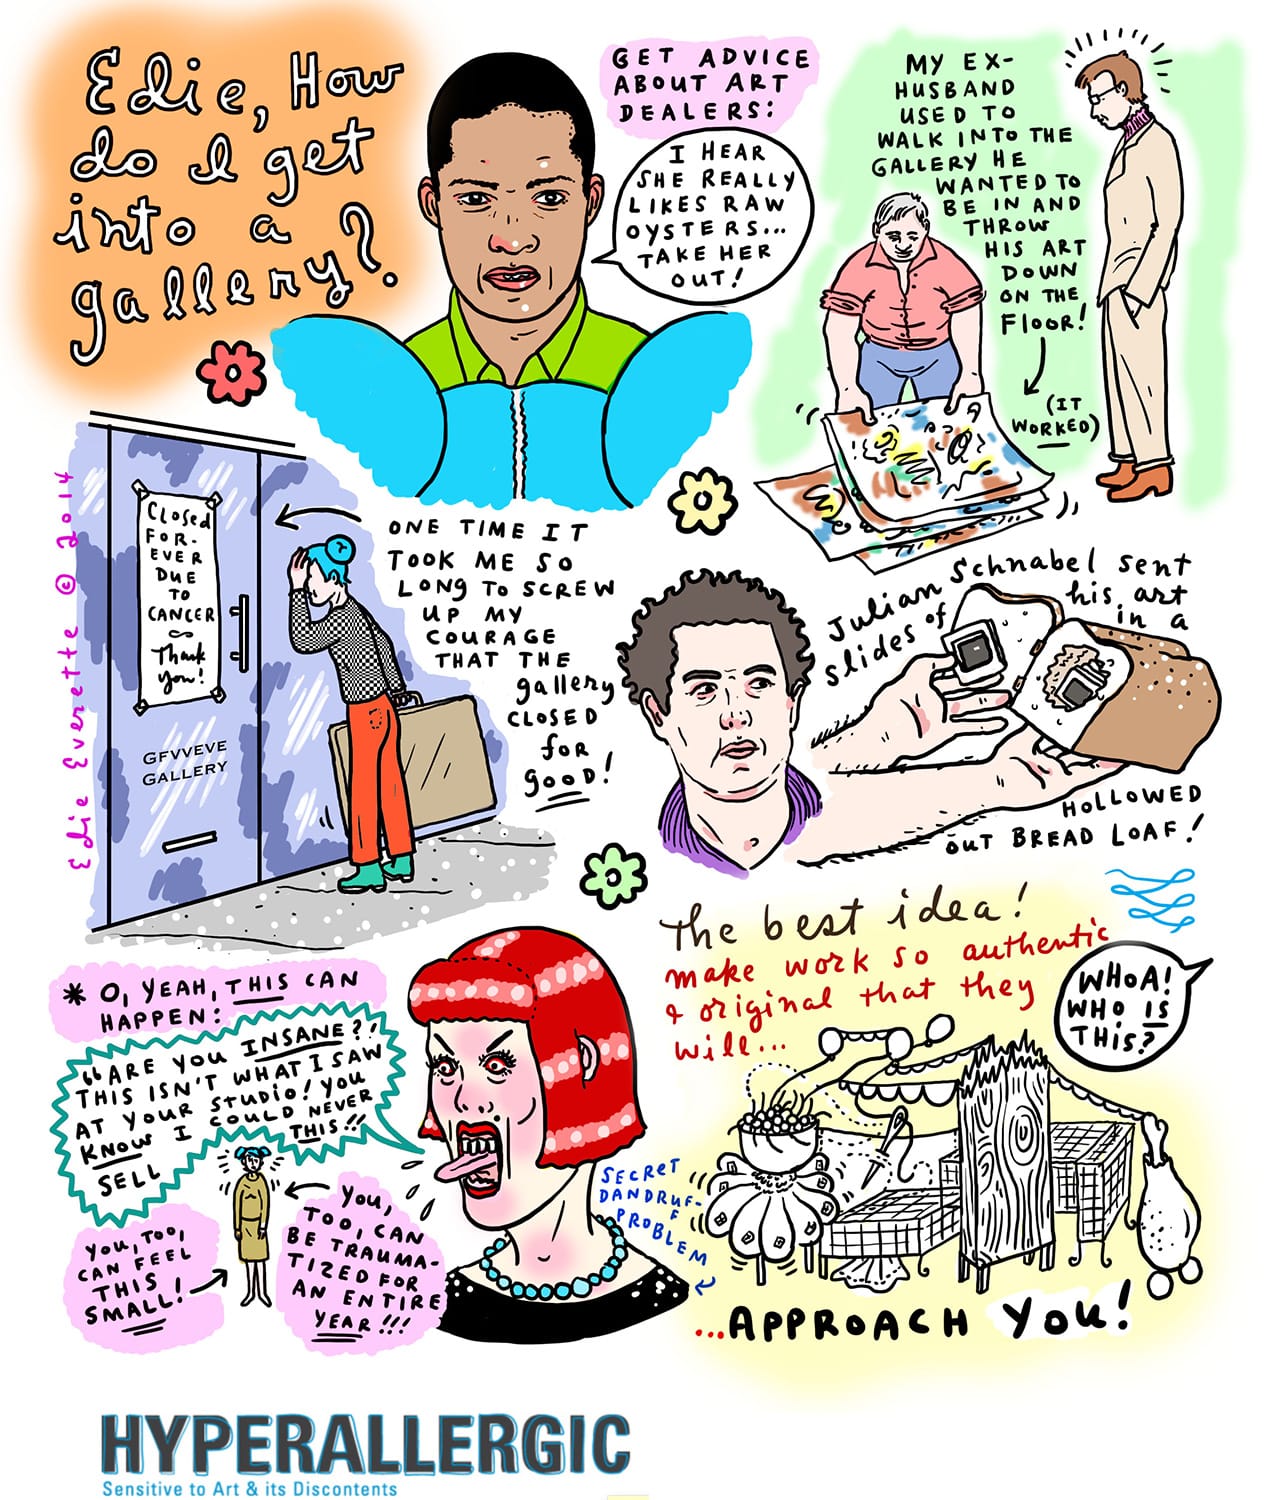 Edie, How
do I get
into a
gallery?
GET ADVICE
ABOUT ART
DEALERS:
I HEAR
SHE REALLY
LIKES RAW
OYSTERS...
TAKE HER
OUT!
MY EX-
HUSBAND
USED TO
WALK INTO THE
GALLERY HE
WANTED TO
BE IN AND
THROW
HIS ART
DOWN
ON THE
FLOOR!
(IT
WORKED)
Closed
FOR-
EVER
DUE
TO
CANCER
Thank
you!
GFVVEVE
GALLERY
ONE TIME IT
TOOK ME SO
LONG TO SCREW
UP MY
COURAGE
THAT THE
gallery
CLOSED
for
good!
Edie Everette © 2014
Julian Schnabel sent
slides of his art
in a
HOLLOWED
OUT BREAD LOAF!
* O, YEAH, THIS CAN
HAPPEN:
"ARE YOU INSANE?!
THIS ISN'T WHAT I SAW
AT YOUR STUDIO! YOU
KNOW I COULD NEVER
SELL THIS!!
you, too,
CAN FEEL
THIS
SMALL!
you,
TOO, CAN
BE TRAUMA-
TIZED FOR
AN ENTIRE
YEAR!!!
SECRET
DANDRUF-
F
PROBLEM
The best idea!
make work so authentic
& original that they
will...
WHOA!
WHO IS
THIS?
...APPROACH YOU!
HYPERALLERGIC
Sensitive to Art & its Discontents